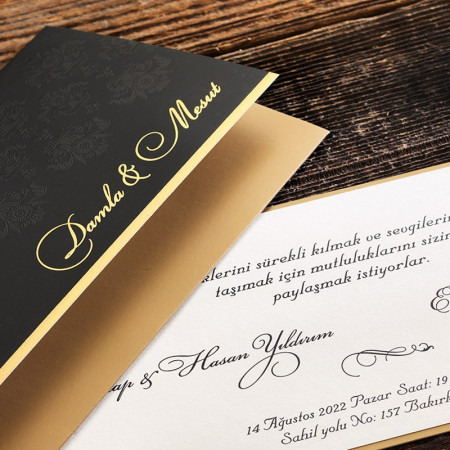 Damla & Mesut
klerini sürekli kılmak ve sevgilerin
taşımak için mutluluklarını sizin
paylaşmak istiyorlar.
ap & Hasan Yıldırım
14 Ağustos 2022 Pazar Saat: 19
Sahil yolu No: 157 Bakırk